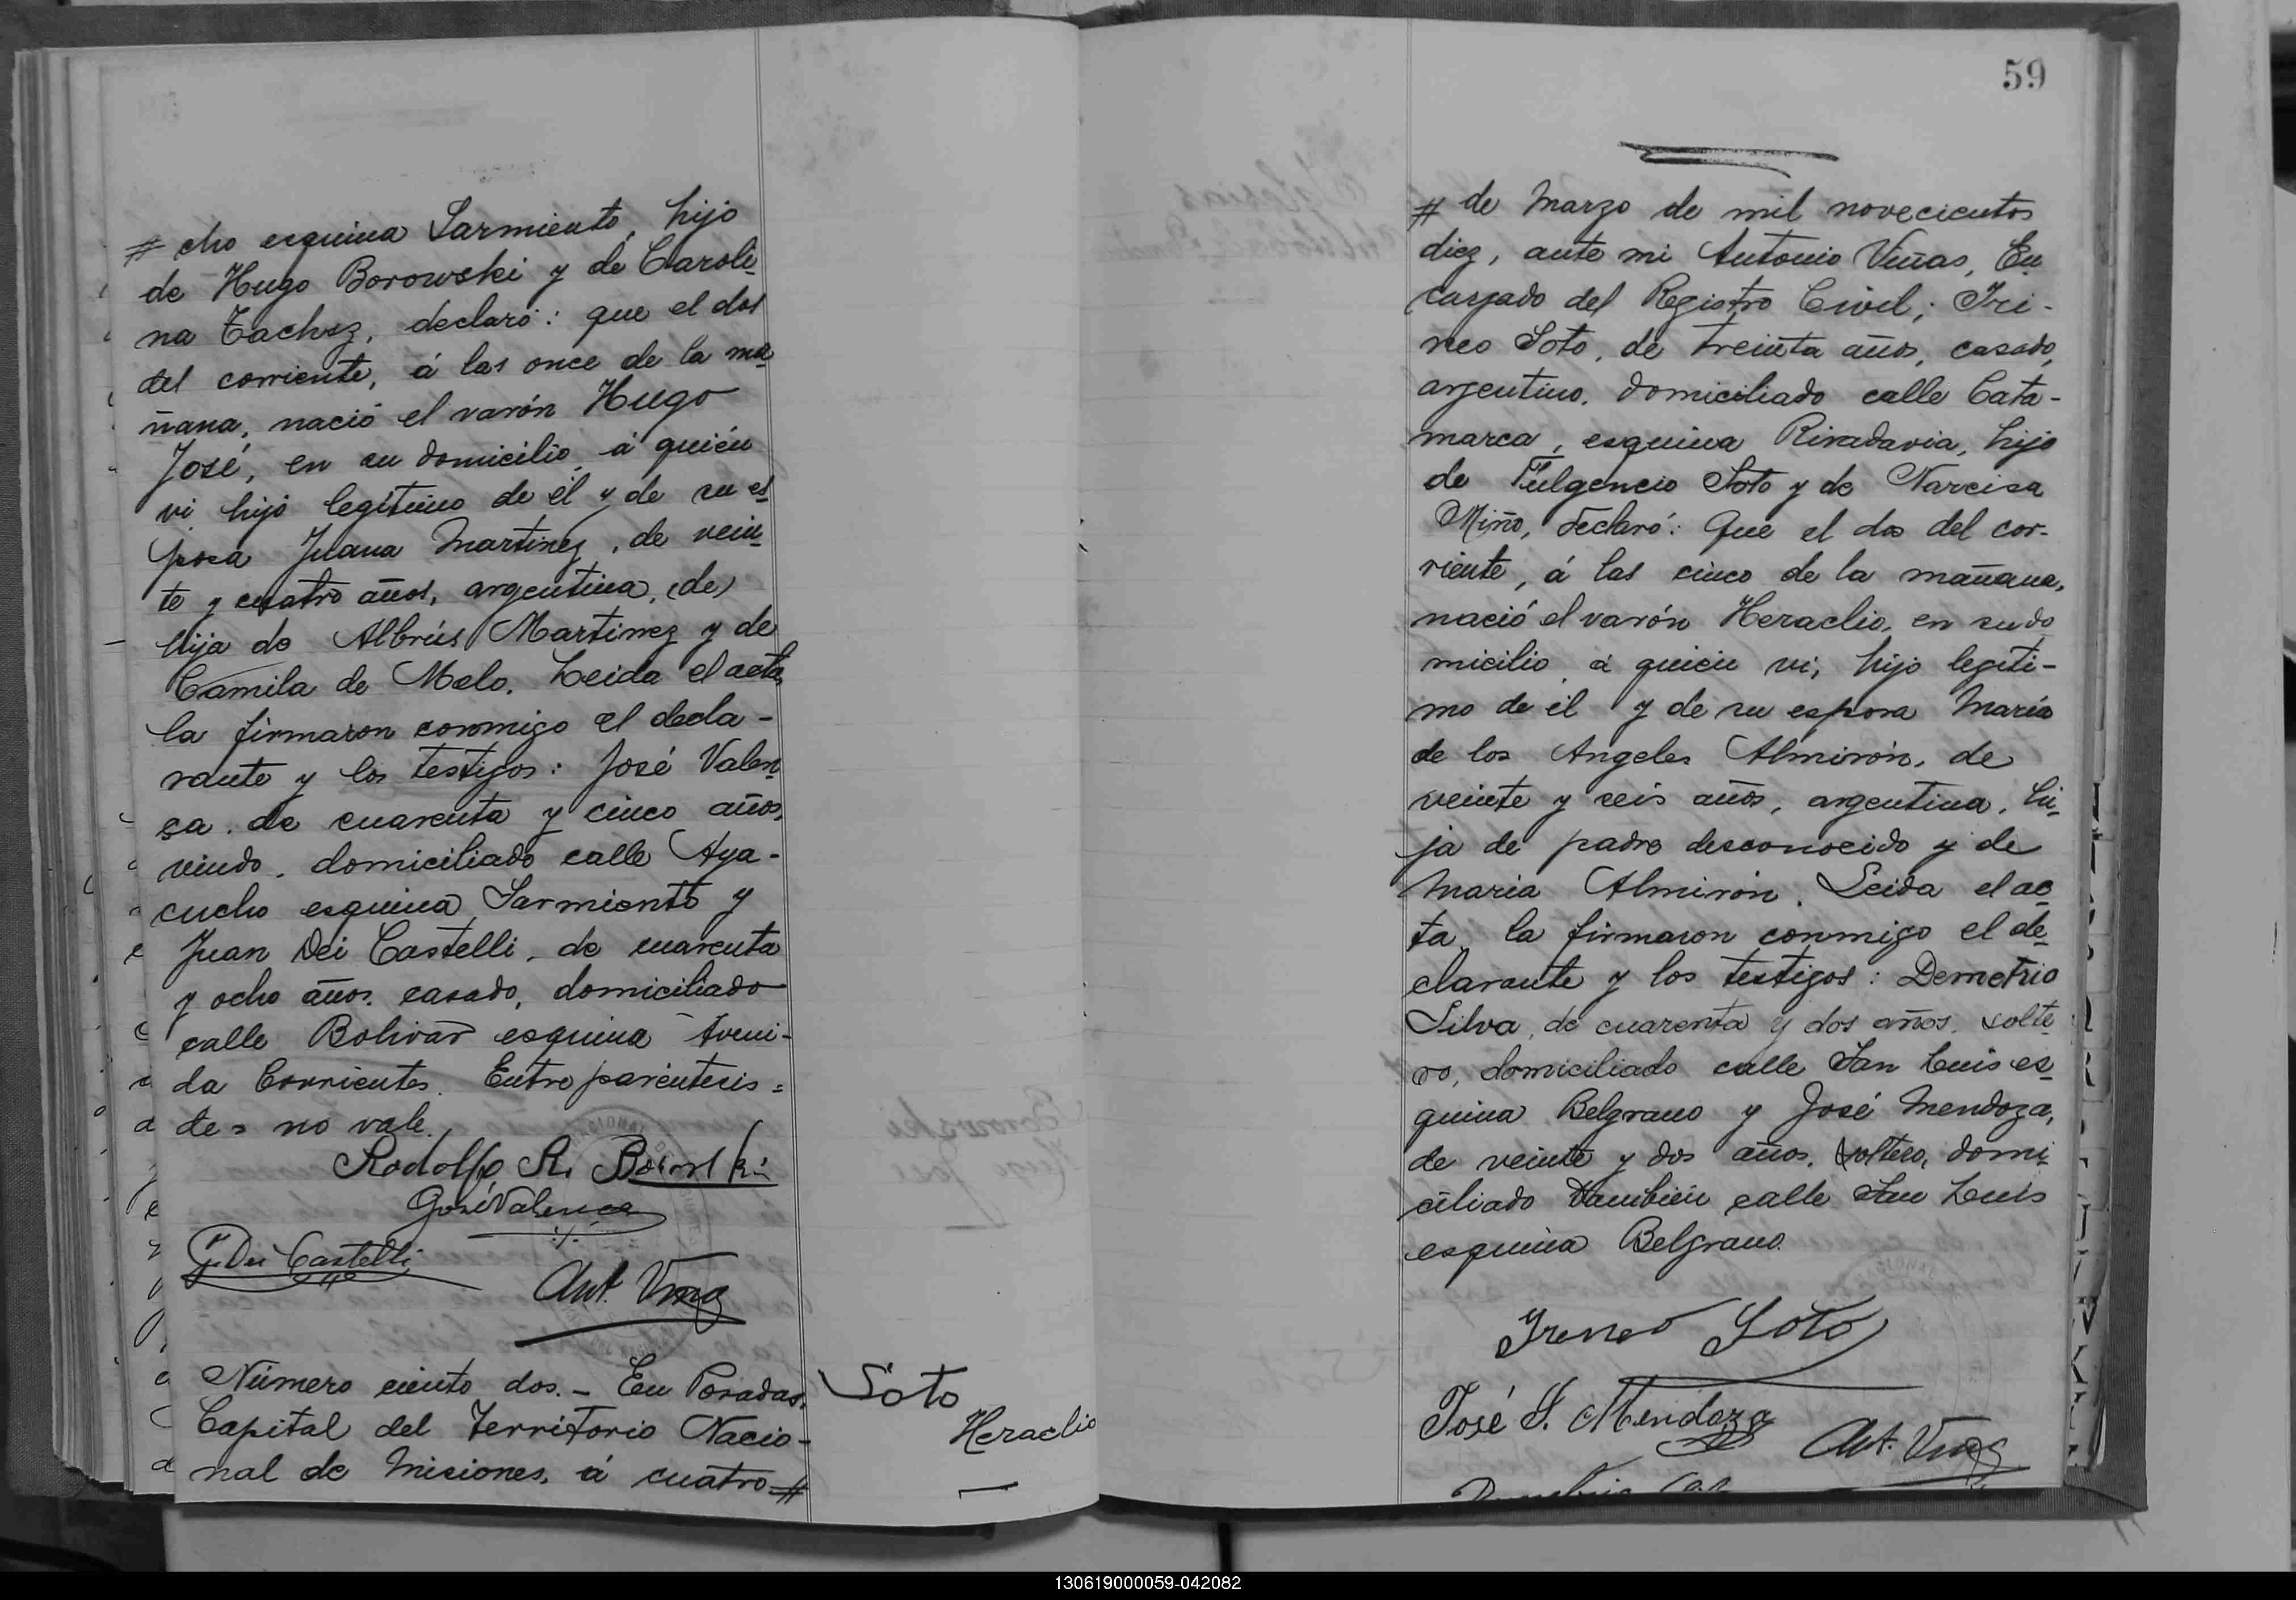 # cho esquina Sarmiento, hijo
de Hugo Borowski y de Caroli-
na Tachez, declaró: que el dos
del corriente, á las once de la ma-
ñana, nació el varón Hugo
José, en su domicilio, á quién
vi hijo legítimo de él y de su es-
posa Juana Martinez, de vein-
te y cuatro años, argentina, (de)
hija de Albrús Martinez y de
Camila de Melo. Leida el acta,
la firmaron conmigo el decla-
rante y los testigos: José Valen-
sa, de cuarenta y cinco años,
viudo, domiciliado calle Aya-
cucho esquina Sarmiento y
Juan Dei Castelli, de cuarenta
y ocho años, casado, domiciliado
calle Bolivar esquina Aveni-
da Corrientes. Entre paréntesis =
de = no vale.
Rodolfo R. Borowski
José Valensa
J. Dei Castelli
Ant. Viñas
Número ciento dos. - En Posadas,
Capital del Territorio Nacio-
nal de Misiones, á cuatro #
Soto
Heraclio
59
# de Marzo de mil novecientos
diez, ante mi Antonio Viñas, En
cargado del Registro Civil; Iri-
neo Soto, de treinta años, casado,
argentino, domiciliado calle Cata-
marca, esquina Rivadavia, hijo
de Fulgencio Soto y de Narcisa
Miño, declaró: Que el dos del cor-
riente, á las cinco de la mañana,
nació el varón Heraclio, en su do
micilio á quien vi, hijo legiti-
mo de él y de su esposa Maria
de los Angeles Almirón, de
veinte y seis años, argentina, hi-
ja de padre desconocido y de
Maria Almirón. Leida el ac-
ta, la firmaron conmigo el de-
clarante y los testigos: Demetrio
Silva, de cuarenta y dos años, solte-
ro, domiciliado calle San Luis es-
quina Belgrano y José Mendoza,
de veinte y dos años, soltero, domi-
ciliado tambien calle San Luis
esquina Belgrano.
Ireneo Soto
José S. Mendoza
Ant. Viñas
130619000059-042082